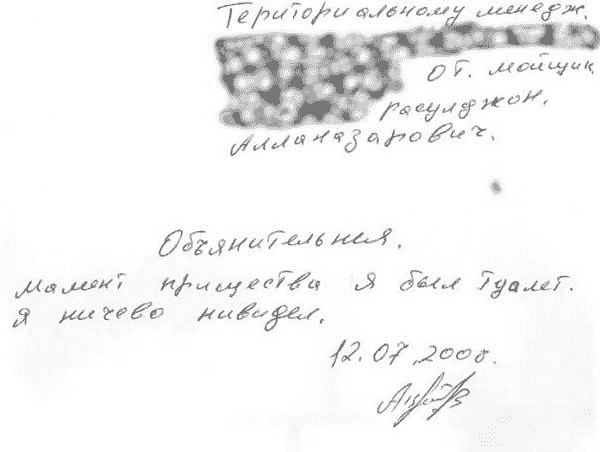 Териториальному менедж.
от. мойщик
расулджон.
Алланазарович.
Объянительнея.
мамент прищества я был туалет.
я ничево нивидел.
12.07.2008.